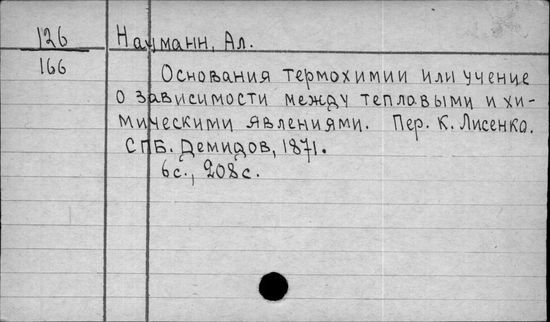 126
166
Науманн, Ал.
Основания термохимии или учение
о зависимости между теплавыми и хи-
мическими явлениями. Пер. К. Лисенко.
СПБ. Демидов, 1871.
6с., 208с.